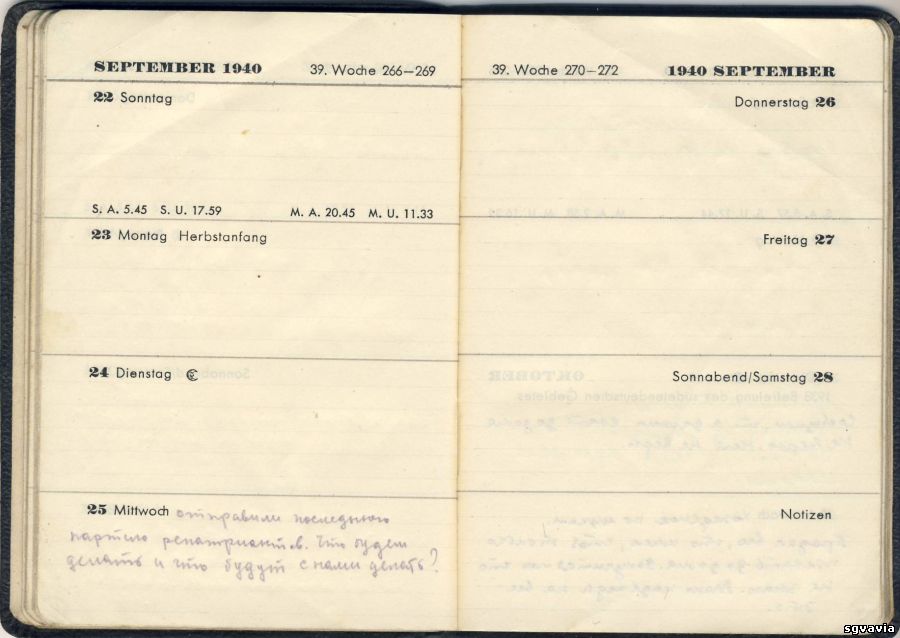 SEPTEMBER 1940 39. Woche 266–269
22 Sonntag
S. A. 5.45 S. U. 17.59 M. A. 20.45 M. U. 11.33
23 Montag Herbstanfang
24 Dienstag ☾
25 Mittwoch отправили последнюю
партию репатриантов. Что будем
делать и что будут с нами делать?
39. Woche 270–272 1940 SEPTEMBER
Donnerstag 26
Freitag 27
Sonnabend/Samstag 28
OKTOBER
1938 Befreiung des sudetendeutschen Gebietes
Notizen
sgvavia